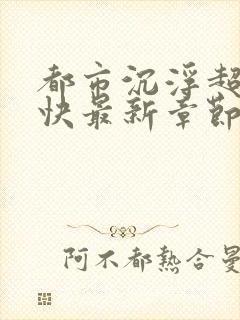 都市沉浮超
快最新章節
阿不都熱合曼